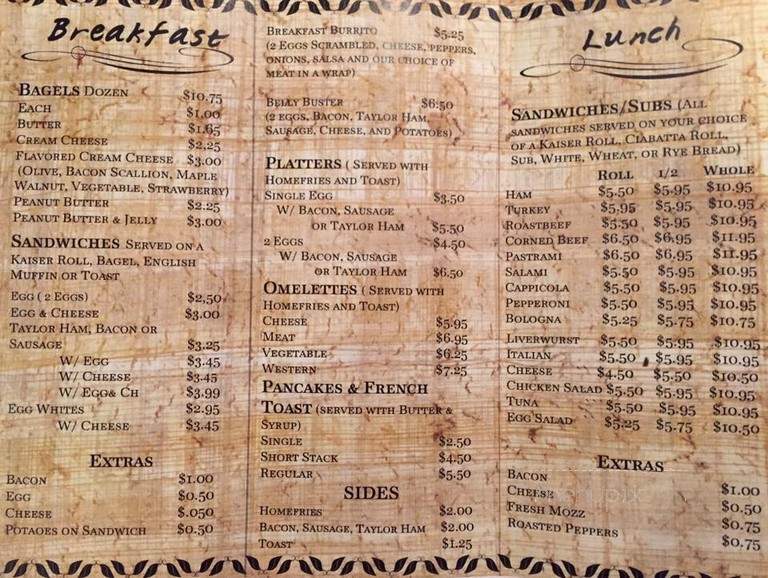 Breakfast
BAGELS DOZEN $10.75
EACH $1.00
BUTTER $1.65
CREAM CHEESE $2.25
FLAVORED CREAM CHEESE $3.00
(OLIVE, BACON SCALLION, MAPLE
WALNUT, VEGETABLE, STRAWBERRY)
PEANUT BUTTER $2.25
PEANUT BUTTER & JELLY $3.00
SANDWICHES SERVED ON A
KAISER ROLL, BAGEL, ENGLISH
MUFFIN OR TOAST
EGG ( 2 EGGS) $2,50
EGG & CHEESE $3.00
TAYLOR HAM, BACON OR
SAUSAGE $3.25
W/ EGG $3.45
W/ CHEESE $3.45
W/ EGG& CH $3.99
EGG WHITES $2.95
W/ CHEESE $3.45
EXTRAS
BACON $1.00
EGG $0.50
CHEESE $.050
POTAOES ON SANDWICH $0.50
BREAKFAST BURRITO $5.25
(2 EGGS SCRAMBLED, CHEESE, PEPPERS,
ONIONS, SALSA AND OUR CHOICE OF
MEAT IN A WRAP)
BELLY BUSTER $6.50
(2 EGGS, BACON, TAYLOR HAM,
SAUSAGE, CHEESE, AND POTATOES)
PLATTERS ( SERVED WITH
HOMEFRIES AND TOAST)
SINGLE EGG $3.50
W/ BACON, SAUSAGE
OR TAYLOR HAM $5.50
2 EGGS $4.50
W/ BACON, SAUSAGE
OR TAYLOR HAM $6.50
OMELETTES ( SERVED WITH
HOMEFRIES AND TOAST)
CHEESE $5.95
MEAT $6.95
VEGETABLE $6.25
WESTERN $7.25
PANCAKES & FRENCH
TOAST (SERVED WITH BUTTER &
SYRUP)
SINGLE $2.50
SHORT STACK $4.50
REGULAR $5.50
SIDES
HOMEFRIES $2.00
BACON, SAUSAGE, TAYLOR HAM $2.00
TOAST $1.25
Lunch
SANDWICHES/SUBS (ALL
SANDWICHES SERVED ON YOUR CHOICE
OF A KAISER ROLL, CIABATTA ROLL,
SUB, WHITE, WHEAT, OR RYE BREAD)
ROLL 1/2 WHOLE
HAM $5.50 $5.95 $10.95
TURKEY $5,95 $5.95 $10.95
ROASTBEEF $5.50 $5.95 $10.95
CORNED BEEF $6.50 $6.95 $11.95
PASTRAMI $6.50 $6,95 $11.95
SALAMI $5.50 $5.95 $10.95
CAPPICOLA $5.50 $5.95 $10.95
PEPPERONI $5.50 $5.95 $10.95
BOLOGNA $5.25 $5.75 $10.75
LIVERWURST $5.50 $5.95 $10.95
ITALIAN $5.50 $5.95 $10.95
CHEESE $4.50 $5.50 $10.50
CHICKEN SALAD $5.50 $5.95 $10.95
TUNA $5.50 $5.95 $10.95
EGG SALAD $5.25 $5.75 $10.50
EXTRAS
BACON $1.00
CHEESE $0.50
FRESH MOZZ $0.75
ROASTED PEPPERS $0.75